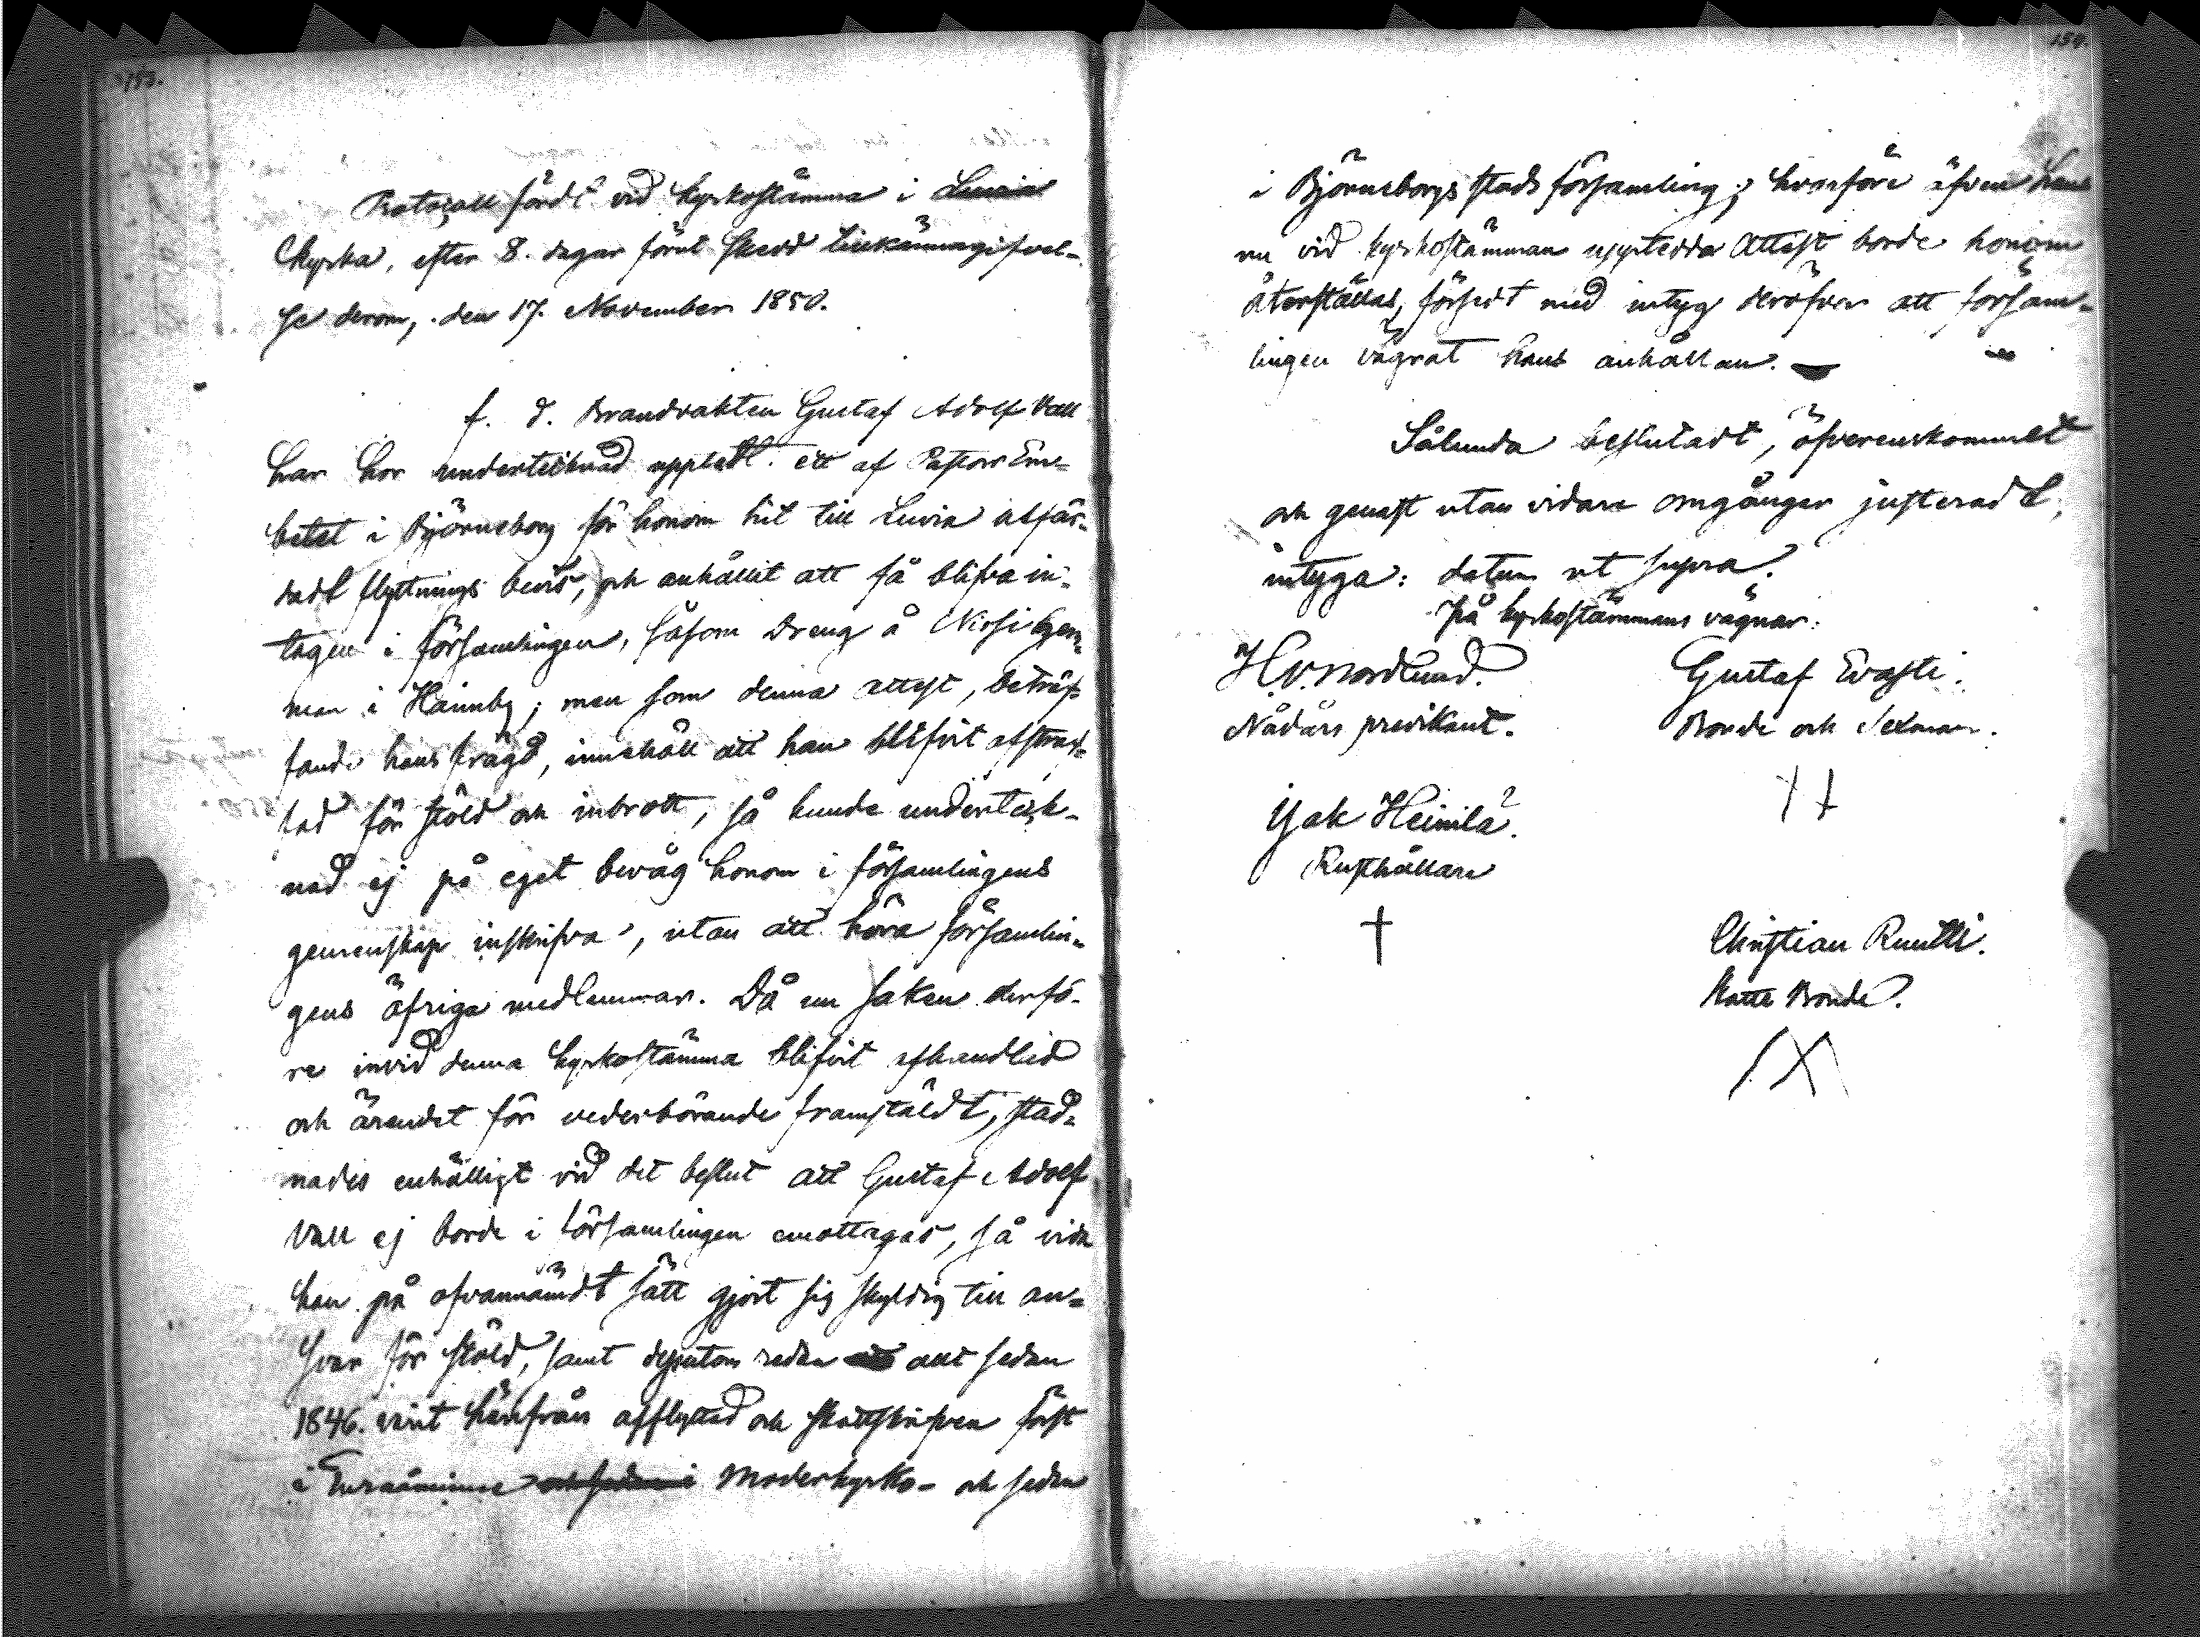 153.
Protocoll fördt vid kyrkostämma i Luvia
kyrka, efter 8. dagar förut skedd tillkännagifvel-
se derom, den 17. November 1850.
f. d. Brandvakten Gustaf Adolf Vall
har hos undertecknad uppledt ett af Pastors Em-
betet i Björneborg för honom hit till Luvia utfär-
dadt flyttnings bevis, och anhållit att få blifva in-
tagen i församlingen, såsom Dreng å Nirfi hem-
man i Hainby; men som denna attest, beträf-
fande hans frägd, innehöll att han blifvit afstraf-
fad för stöld och inbrott, så kunde underteck-
nad ej på eget bevåg honom i församlingens
gemenskap inskrifva, utan att höra församlin-
gens öfriga medlemmar. Då nu saken derfö-
re invid denna kyrkostämma blifvit afhandlid
och ärendet för vederbörande framstäldt, stad-
nades enhälligt vid det beslut att Gustaf Adolf
Vall ej borde i församlingen emottagas, så vida
han på ofvannämdt sätt gjort sig skyldig till an-
svar för stöld, samt dessutom redan allt sedan
1846. varit härifrån afflyttad och skattskrifven först
i Euraåminne och sedan i Moderkyrko- och sedan
154.
i Björneborgs stads församling; hvarföre äfven hans
nu vid kyrkostämman uppledda Attest borde honom
återställas, försedt med intyg deröfver att försam-
lingen vägrat hans anhållan.
Sålunda beslutadt, öfverenskommet
och genast utan vidare omgångar justeradt,
intyga: datum ut supra.
På kyrkostämmans vägnar:
H.V. Nordlund. Gustaf Evasti.
Nådårs predikant. Bonde och Sexman.
Isak Heinilä.
Rusthållare
Christian Ruutti.
Skatte Bonde.